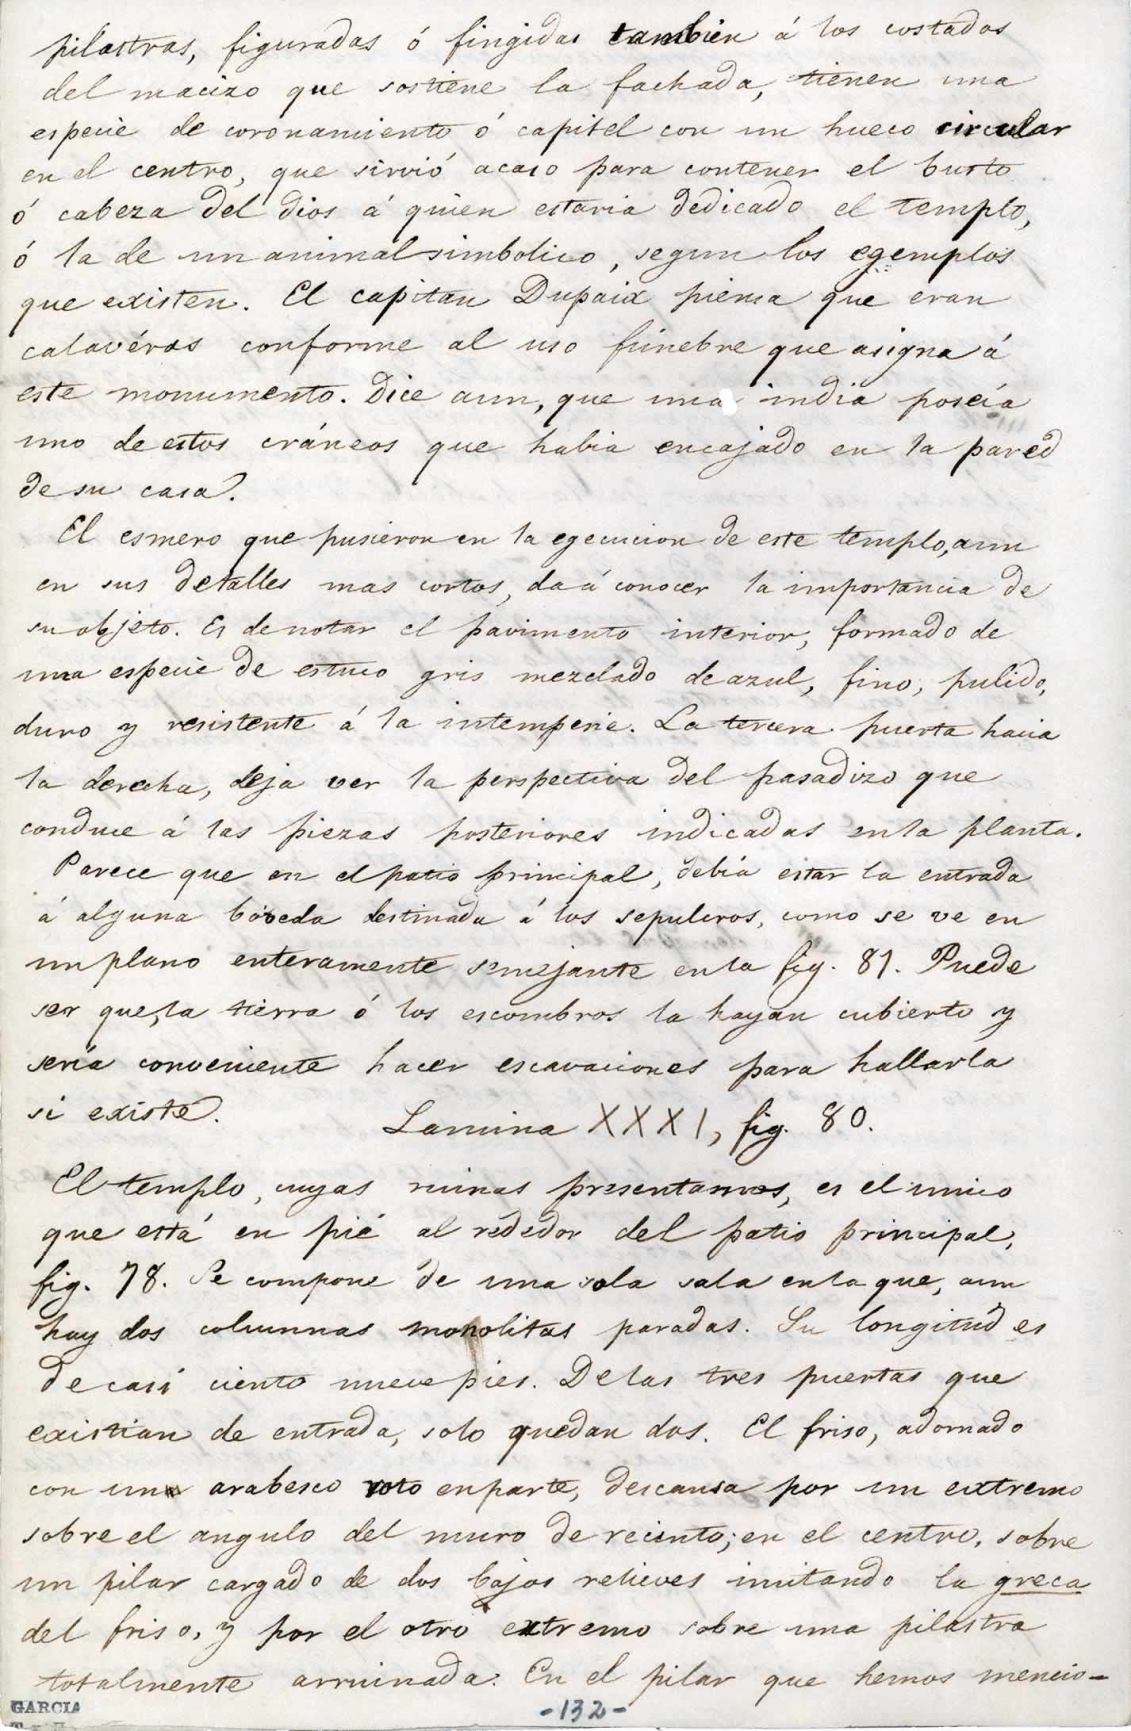 pilastras, figuradas ó fingidas tambien á los costados
del macizo que sostiene la fachada, tienen una
especie de coronamiento ó capitel con un hueco circular
en el centro, que sirvió acaso para contener el busto
ó cabeza del dios á quien estaria dedicado el templo,
ó la de un animal simbolico, segun los egemplos
que existen. El capitan Dupaix piensa que eran
calavéras conforme al uso fúnebre que asigna á
este monumento. Dice aun, que una india poseía
uno de estos cráneos que habia encajado en la pared
de su casa.
El esmero que pusieron en la egecucion de este templo, aun
en sus detalles mas cortos, da á conocer la importancia de
su objeto. Es de notar el pavimento interior, formado de
una especie de estuco gris mezclado de azul, fino, pulido,
duro y resistente á la intemperie. La tercera puerta hacia
la derecha, deja ver la perspectiva del pasadizo que
conduce á las piezas posteriores indicadas en la planta.
Parece que en el patio principal, debia estar la entrada
á alguna bóveda destinada á los sepulcros, como se ve en
un plano enteramente semejante en la fig. 81. Puede
ser que, la tierra ó los escombros la hayan cubierto y
sería conveniente hacer escavaciones para hallarla
si existe.
Lamina XXXI, fig. 80.
El templo, cuyas ruinas presentamos, es el unico
que está en pié al rededor del patio principal,
fig. 78. Se compone de una sola sala en la que, aun
hay dos columnas monolitas paradas. Su longitud es
de casi ciento nueve pies. De las tres puertas que
existian de entrada, solo quedan dos. El friso, adornado
con un arabesco roto en parte, descansa por un extremo
sobre el angulo del muro de recinto; en el centro, sobre
un pilar cargado de dos bajos relieves imitando la greca
del friso, y por el otro extremo sobre una pilastra
totalmente arruinada. En el pilar que hemos mencio-
GARCIA
-132-